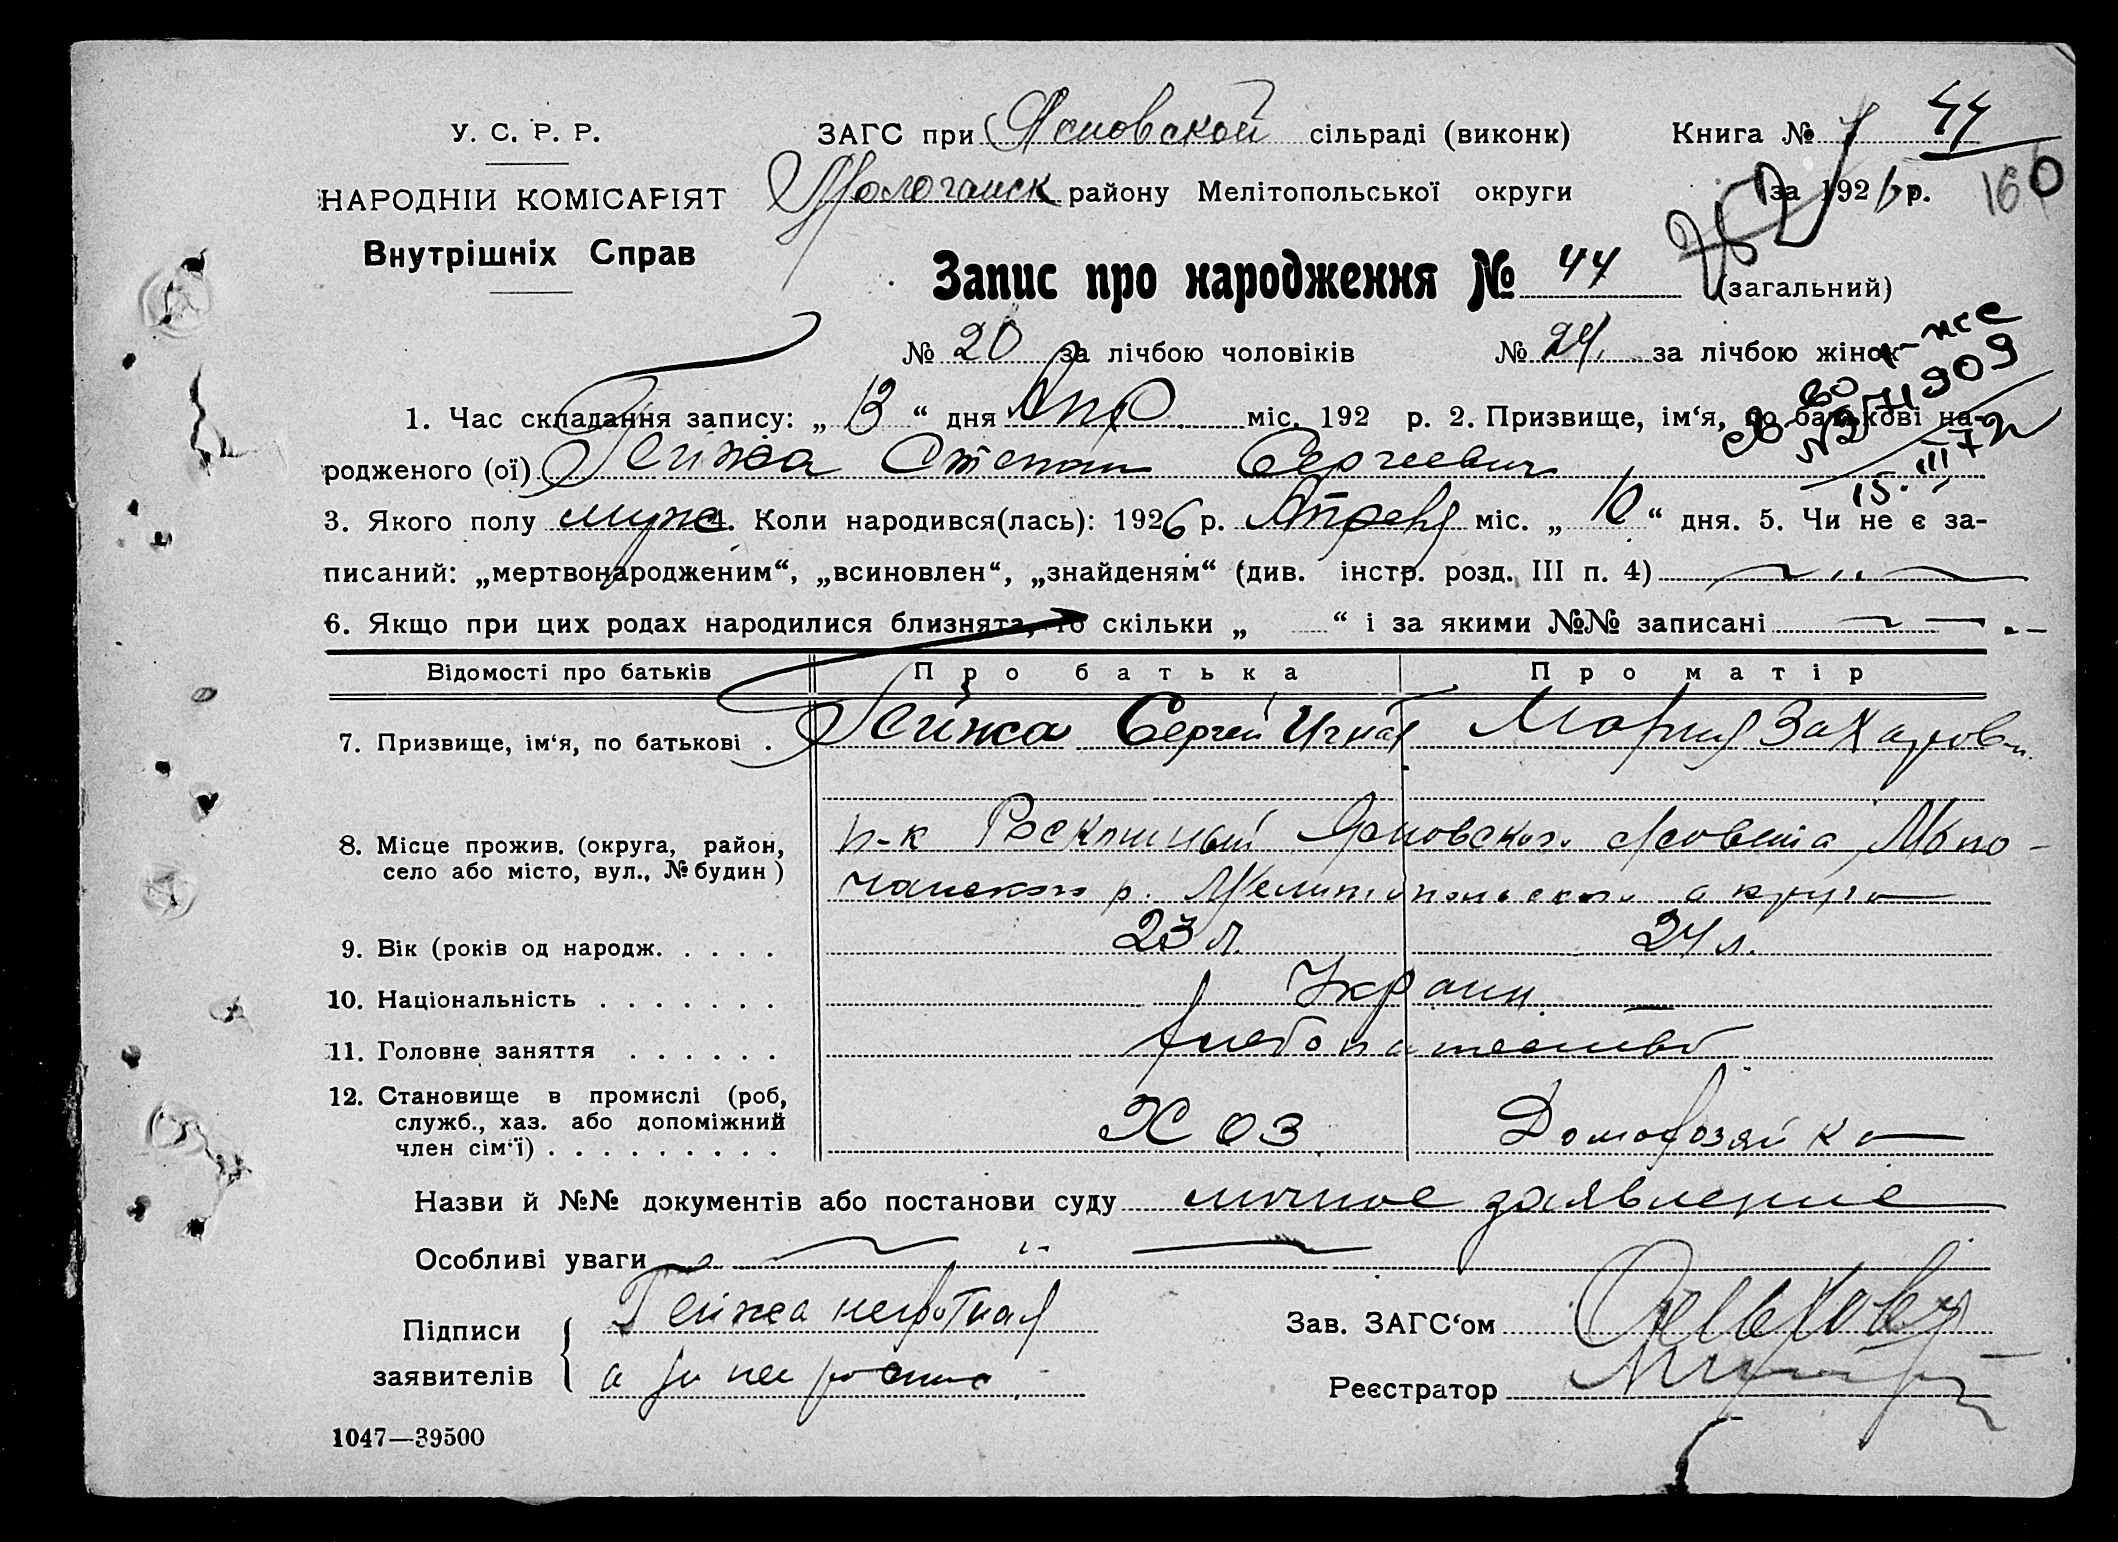 У. С. Р. Р.
НАРОДНІЙ КОМІСАРІЯТ
Внутрішніх Справ
ЗАГС при Ясновской сільраді (виконк)
Молочанск району Мелітопольської округи
Книга № 1 44
за 1926 р. 160
Запис про народження № 44 (загальний)
№ 20 за лічбою чоловіків № 24 за лічбою жінок
1. Час складання запису: „ 13 “ дня Апр міс. 192 р. 2. Призвище, ім‘я, по батькові на-
родженого (ої) Гейжа Степан Сергеевич
3. Якого полу муж 4. Коли народився(лась): 1926 р. Апреля міс. „ 10 “ дня. 5. Чи не є за-
писаний: „мертвонародженим“, „всиновлен“, „знайденям“ (див. інстр. розд. III п. 4)
6. Якщо при цих родах народилися близнята, то скільки „ “ і за якими №№ записані
Відомості про батьків Про батька Про матір
7. Призвище, ім‘я, по батькові . Гейжа Сергей Игнат Мария Захаровн.
8. Місце прожив. (округа, район, село або місто, вул., № будин)
Роскошный Ясновского с/совета Моло-
чанского р. Мелитопольского округа
9. Вік (років од народж. . . . . 23 л. 24 л.
10. Національність . . . . . . . Украин
11. Головне заняття . . . . . . хлебопашество
12. Становище в промислі (роб, служб., хаз. або допоміжний член сім‘ї) . . . . . . . . . Хоз Домохозяйка
Назви й №№ документів або постанови суду личное заявление
Особливі уваги
Підписи заявителів { Гейжа неграмотная
а за нее
Зав. ЗАГС‘ом
Реєстратор
1047—39500